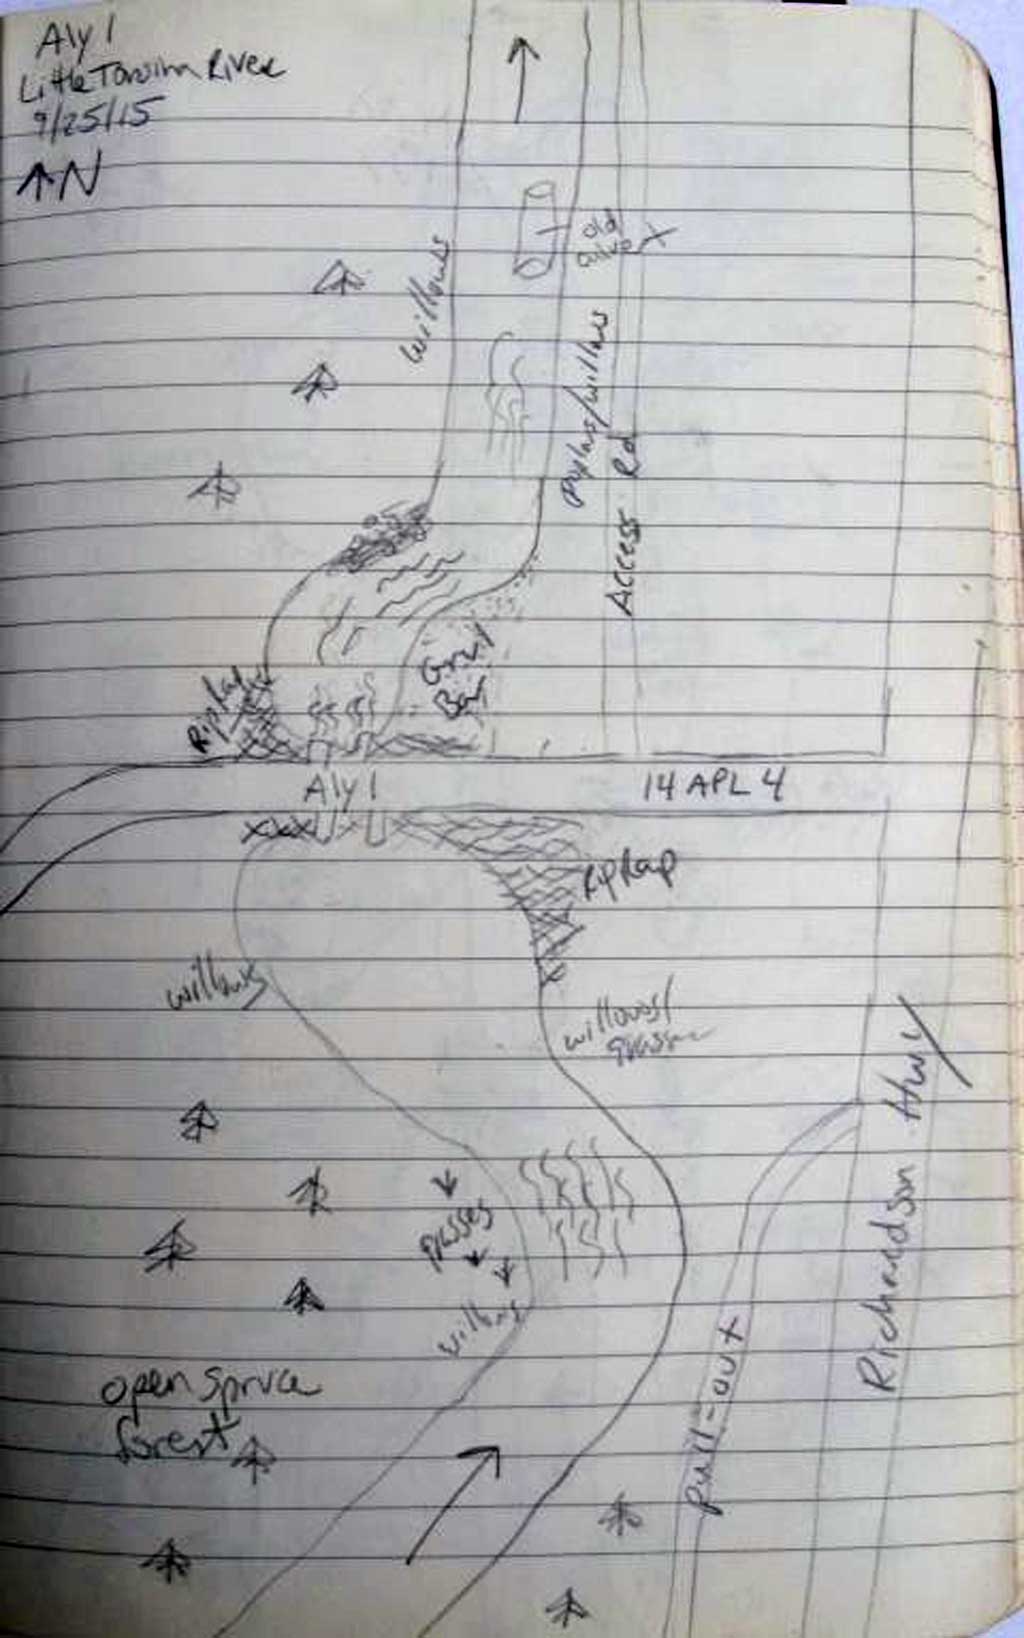 Aly 1
Little Tonsina River
9/25/15
N
willows
old
culvert
poplars/willows
Access Rd
Gravel
Bar
RipRap
Aly 1
14 APL 4
XXX
RipRap
willows
willows/
grasses
grasses
willows
Richardson Hwy
pull-out
open spruce
forest